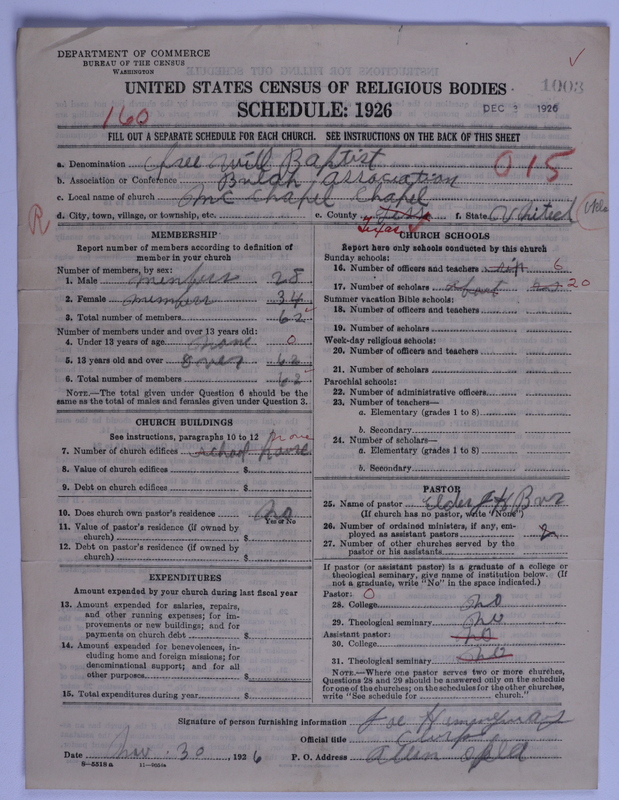 DEPARTMENT OF COMMERCE
BUREAU OF THE CENSUS
WASHINGTON
1003
UNITED STATES CENSUS OF RELIGIOUS BODIES
SCHEDULE: 1926
DEC 2 1926
160
FILL OUT A SEPARATE SCHEDULE FOR EACH CHURCH. SEE INSTRUCTIONS ON THE BACK OF THIS SHEET
a. Denomination Free Will Baptist 015
b. Association or Conference Bulah Association
c. Local name of church Mc Chapel Chapel
R d. City, town, village, or township, etc. e. County Texas f. State
MEMBERSHIP
Report number of members according to definition of
member in your church
Number of members, by sex:
1. Male members 28
2. Female members 34
3. Total number of members 62
Number of members under and over 13 years old:
4. Under 13 years of age none 0
5. 13 years old and over over 62
6. Total number of members 62
NOTE.—The total given under Question 6 should be the
same as the total of males and females given under Question 3.
CHURCH BUILDINGS
See instructions, paragraphs 10 to 12 none
7. Number of church edifices school house
8. Value of church edifices $
9. Debt on church edifices $
10. Does church own pastor's residence no
Yes or No
11. Value of pastor's residence (if owned by
church) $
12. Debt on pastor's residence (if owned by
church) $
EXPENDITURES
Amount expended by your church during last fiscal year
13. Amount expended for salaries, repairs,
and other running expenses; for im-
provements or new buildings; and for
payments on church debt $
14. Amount expended for benevolences, in-
cluding home and foreign missions; for
denominational support; and for all
other purposes $
15. Total expenditures during year $
CHURCH SCHOOLS
Report here only schools conducted by this church
Sunday schools:
16. Number of officers and teachers 6
17. Number of scholars 20
Summer vacation Bible schools:
18. Number of officers and teachers
19. Number of scholars
Week-day religious schools:
20. Number of officers and teachers
21. Number of scholars
Parochial schools:
22. Number of administrative officers
23. Number of teachers—
a. Elementary (grades 1 to 8)
b. Secondary
24. Number of scholars—
a. Elementary (grades 1 to 8)
b. Secondary
PASTOR
25. Name of pastor Elder
(If church has no pastor, write "None")
26. Number of ordained ministers, if any, em-
ployed as assistant pastors 2
27. Number of other churches served by the
pastor or his assistants
If pastor (or assistant pastor) is a graduate of a college or
theological seminary, give name of institution below. (If
not a graduate, write "No" in the space indicated.)
Pastor: 0
28. College no
29. Theological seminary no
Assistant pastor: no
30. College
31. Theological seminary no
NOTE.—Where one pastor serves two or more churches,
Questions 28 and 29 should be answered only on the schedule
for one of the churches; on the schedules for the other churches,
write "See schedule for church."
Signature of person furnishing information Joe
Official title Clerk
Date Nov. 30, 1926 P. O. Address Allen
8—5518 a 11—9051a